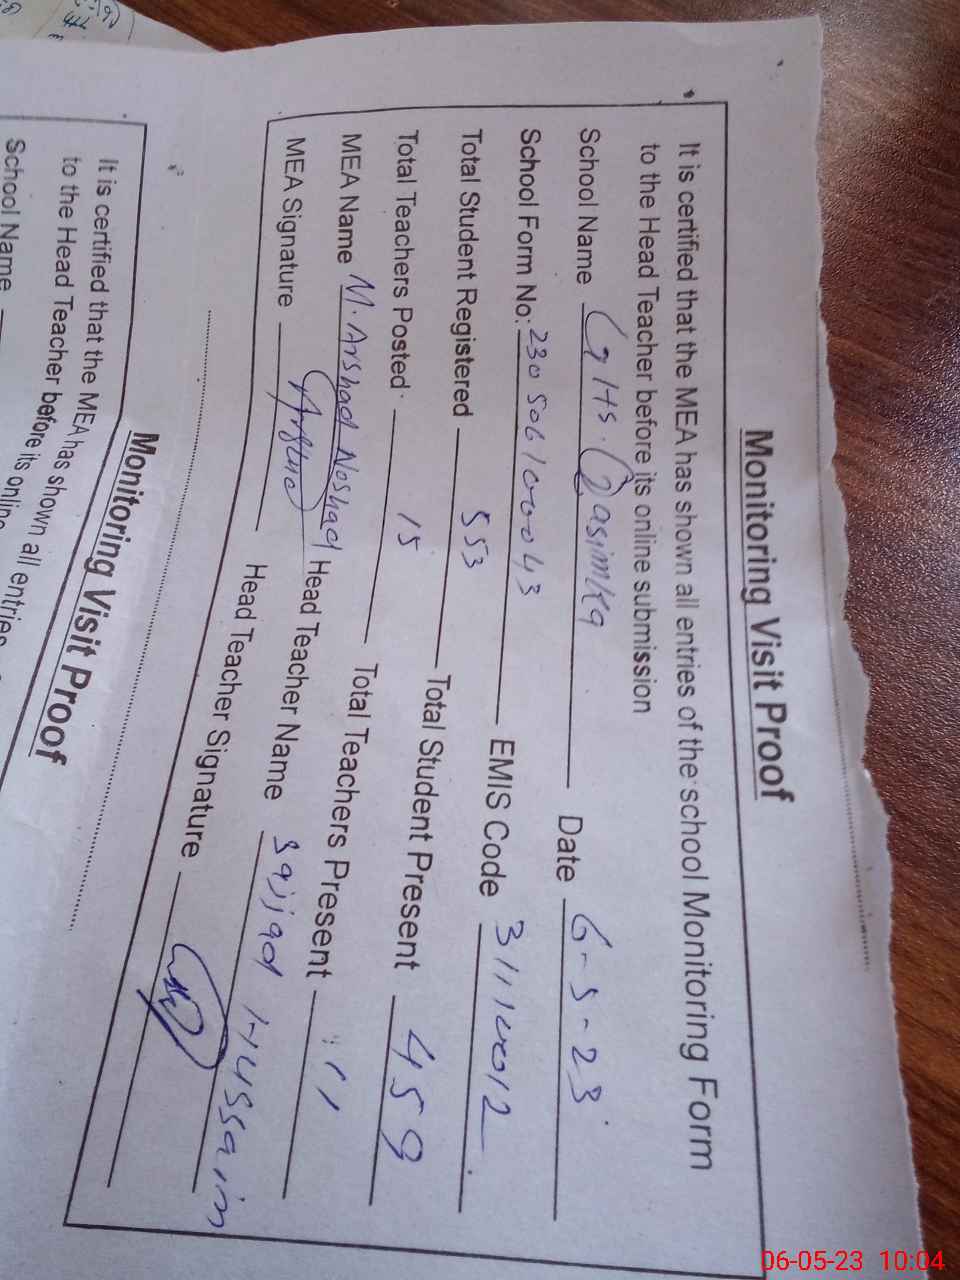 Monitoring Visit Proof
It is certified that the MEA has shown all entries of the school Monitoring Form
to the Head Teacher before its online submission
School Name GHS. Qasimka Date 6-5-23
School Form No: 230506100043 EMIS Code 31110012
Total Student Registered 553 Total Student Present 459
Total Teachers Posted 15 Total Teachers Present 11
MEA Name M. Arshad Noshad Head Teacher Name Sajjad Hussain
MEA Signature Head Teacher Signature
Monitoring Visit Proof
It is certified that the MEA has shown all entries
to the Head Teacher before its online
School Name
06-05-23 10:04